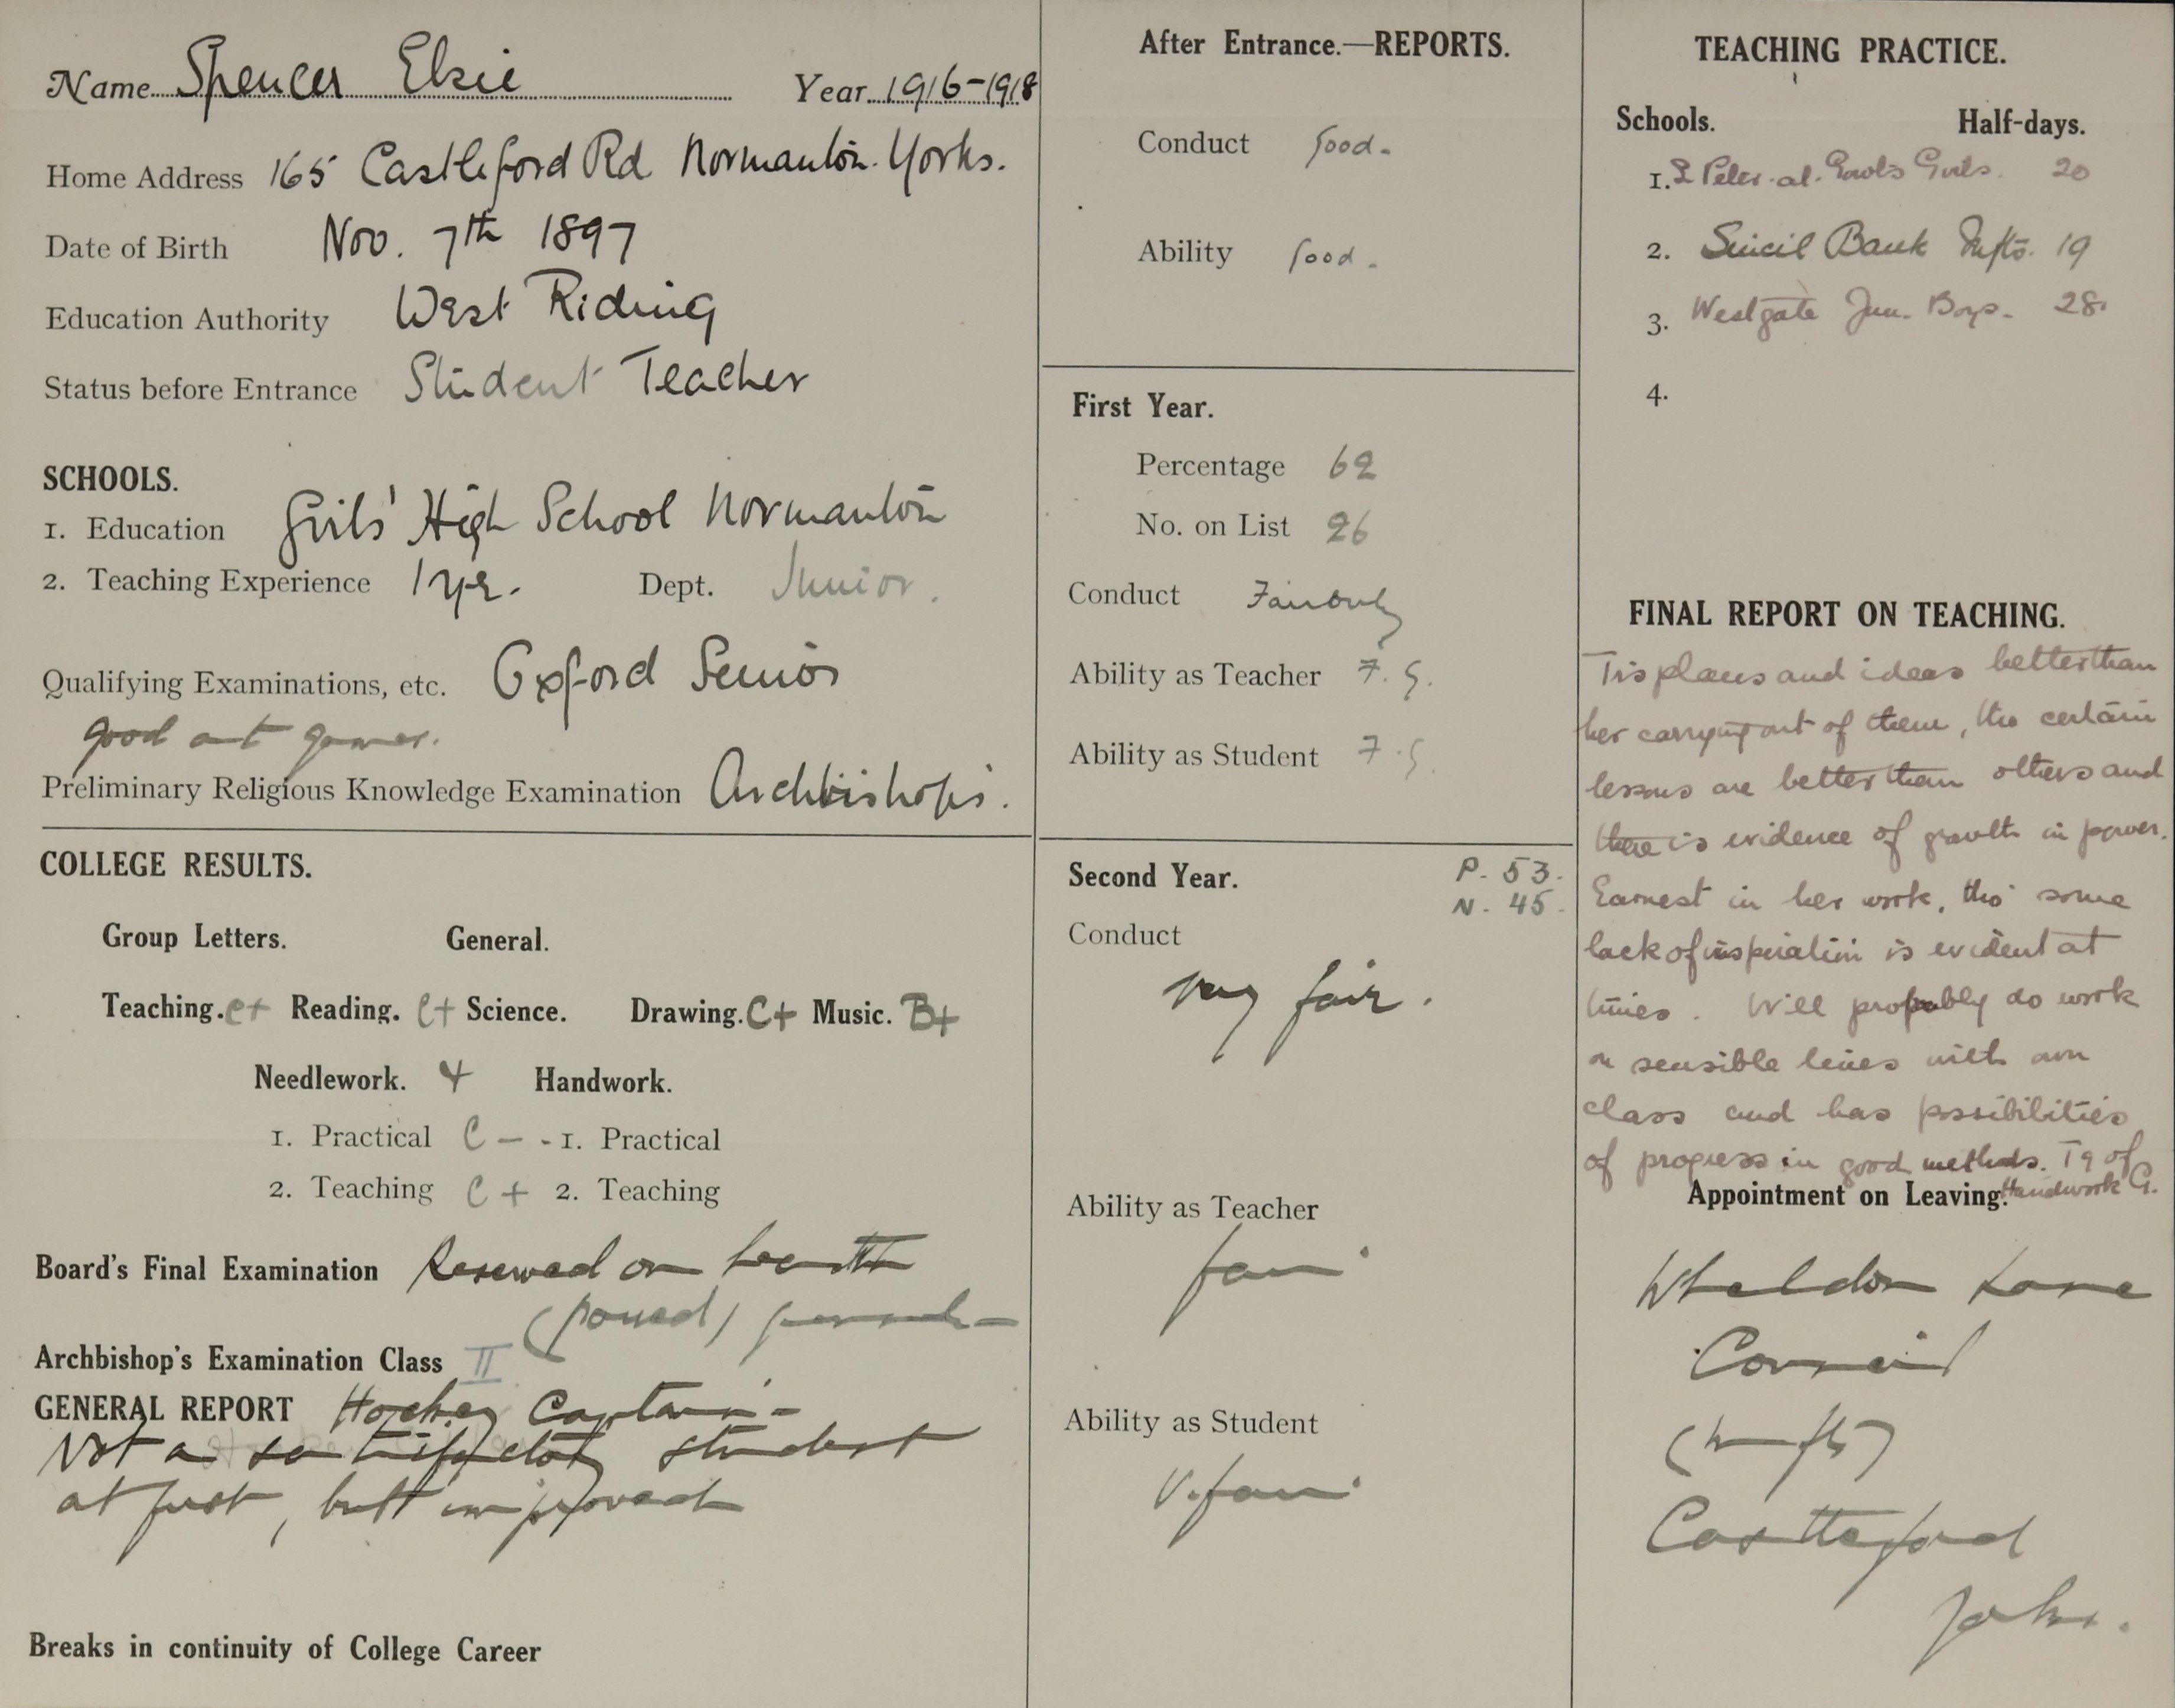 Name Spencer Elsie Year 1916-1918
Home Address 165 Castleford Rd Normanton. Yorks.
Date of Birth Nov. 7th 1897
Education Authority West Riding
Status before Entrance Student Teacher
SCHOOLS.
1. Education Girls' High School Normanton
2. Teaching Experience 1 yr. Dept. Junior.
Qualifying Examinations, etc. Oxford Senior
good at games.
Preliminary Religious Knowledge Examination Archbishop's.
COLLEGE RESULTS.
Group Letters. General.
Teaching. C+ Reading. C+ Science. Drawing. C+ Music. B+
Needlework. 4 Handwork.
1. Practical C - - 1. Practical
2. Teaching C + 2. Teaching
Board's Final Examination Reserved on health
(passed)
Archbishop's Examination Class II
GENERAL REPORT Hockey Captain -
Not a satisfactory student
at first, but improved
Breaks in continuity of College Career
After Entrance.—REPORTS.
Conduct Good.
Ability Good.
First Year.
Percentage 62
No. on List 26
Conduct Fair only
Ability as Teacher F. G.
Ability as Student F. G.
Second Year. P. 53.
N. 45.
Conduct
Very fair.
Ability as Teacher
fair
Ability as Student
V. fair
TEACHING PRACTICE.
Schools. Half-days.
1. S. Peter-at-Gowts Girls. 20
2. Sincil Bank Infts. 19
3. Westgate Jun. Boys. 28.
4.
FINAL REPORT ON TEACHING.
T's plans and ideas better than
her carrying out of them, tho certain
lessons are better than others and
there is evidence of growth in power.
Earnest in her work, tho' some
lack of inspiration is evident at
times. Will probably do work
on sensible lines with own
class and has possibilities
of progress in good methods. Tg of
Handwork G.
Appointment on Leaving.
Wheldon Lane
Council
(Infts)
Castleford
Yorks.